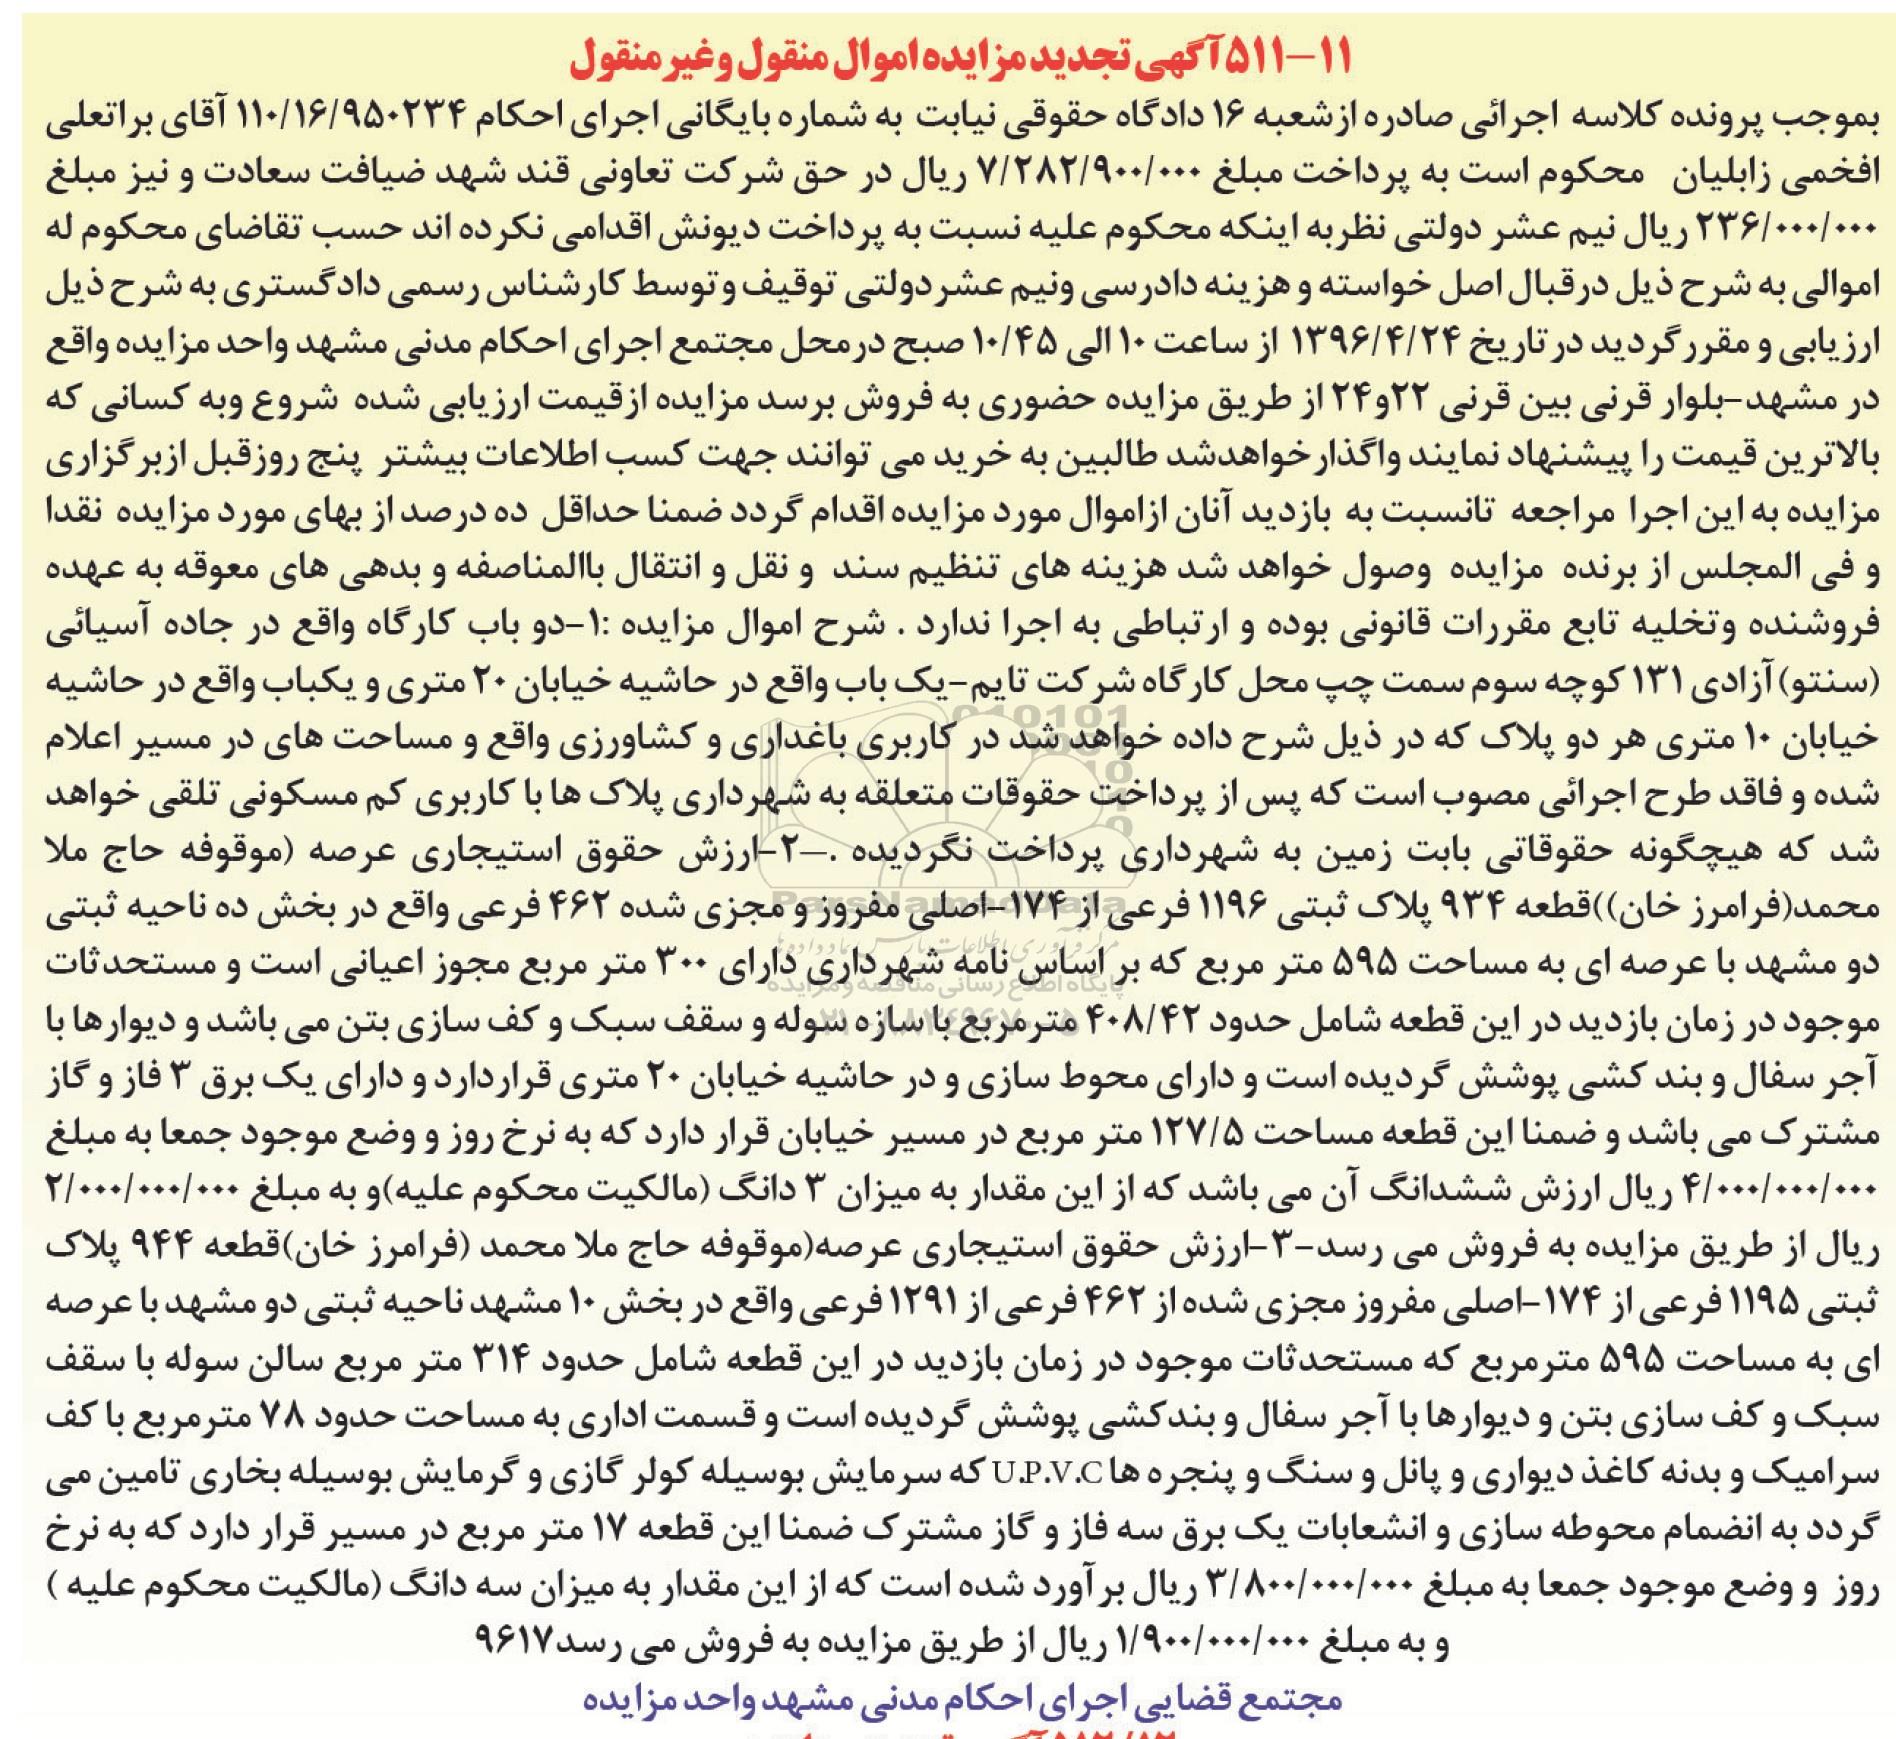 ۱۱–۵۱۱ آگهی تجدید مزایده اموال منقول و غیر منقول
بموجب پرونده کلاسه اجرائی صادره ازشعبه ۱۶ دادگاه حقوقی نیابت به شماره بایگانی اجرای احکام ۱۱۰/۱۶/۹۵۰۲۳۴ آقای براتعلی
افخمی زابلیان محکوم است به پرداخت مبلغ ۷/۲۸۲/۹۰۰/۰۰۰ ریال در حق شرکت تعاونی قند شهد ضیافت سعادت و نیز مبلغ
۲۳۶/۰۰۰/۰۰۰ ریال نیم عشر دولتی نظربه اینکه محکوم علیه نسبت به پرداخت دیونش اقدامی نکرده اند حسب تقاضای محکوم له
اموالی به شرح ذیل درقبال اصل خواسته و هزینه دادرسی ونیم عشردولتی توقیف وتوسط کارشناس رسمی دادگستری به شرح ذیل
ارزیابی و مقررگردید درتاریخ ۱۳۹۶/۴/۲۴ از ساعت ۱۰ الی ۱۰/۴۵ صبح درمحل مجتمع اجرای احکام مدنی مشهد واحد مزایده واقع
در مشهد–بلوار قرنی بین قرنی ۲۲و۲۴ از طریق مزایده حضوری به فروش برسد مزایده ازقیمت ارزیابی شده شروع وبه کسانی که
بالاترین قیمت را پیشنهاد نمایند واگذارخواهدشد طالبین به خرید می توانند جهت کسب اطلاعات بیشتر پنج روزقبل ازبرگزاری
مزایده به این اجرا مراجعه تانسبت به بازدید آنان ازاموال مورد مزایده اقدام گردد ضمنا حداقل ده درصد از بهای مورد مزایده نقدا
و فی المجلس از برنده مزایده وصول خواهد شد هزینه های تنظیم سند و نقل و انتقال باالمناصفه و بدهی های معوقه به عهده
فروشنده وتخلیه تابع مقررات قانونی بوده و ارتباطی به اجرا ندارد . شرح اموال مزایده :۱–دو باب کارگاه واقع در جاده آسیائی
(سنتو)آزادی ۱۳۱ کوچه سوم سمت چپ محل کارگاه شرکت تایم–یک باب واقع در حاشیه خیابان ۲۰ متری و یکباب واقع در حاشیه
خیابان ۱۰ متری هر دو پلاک که در ذیل شرح داده خواهد شد در کاربری باغداری و کشاورزی واقع و مساحت های در مسیر اعلام
شده و فاقد طرح اجرائی مصوب است که پس از پرداخت حقوقات متعلقه به شهرداری پلاک ها با کاربری کم مسکونی تلقی خواهد
شد که هیچگونه حقوقاتی بابت زمین به شهرداری پرداخت نگردیده .–۲–ارزش حقوق استیجاری عرصه (موقوفه حاج ملا
محمد(فرامرز خان))قطعه ۹۳۴ پلاک ثبتی ۱۱۹۶ فرعی از ۱۷۴–اصلی مفروز و مجزی شده ۴۶۲ فرعی واقع در بخش ده ناحیه ثبتی
دو مشهد با عرصه ای به مساحت ۵۹۵ متر مربع که بر اساس نامه شهرداری دارای ۳۰۰ متر مربع مجوز اعیانی است و مستحدثات
موجود در زمان بازدید در این قطعه شامل حدود ۴۰۸/۴۲ مترمربع با سازه سوله و سقف سبک و کف سازی بتن می باشد و دیوارها با
آجر سفال و بند کشی پوشش گردیده است و دارای محوط سازی و در حاشیه خیابان ۲۰ متری قراردارد و دارای یک برق ۳ فاز و گاز
مشترک می باشد و ضمنا این قطعه مساحت ۱۲۷/۵ متر مربع در مسیر خیابان قرار دارد که به نرخ روز و وضع موجود جمعا به مبلغ
۴/۰۰۰/۰۰۰/۰۰۰ ریال ارزش ششدانگ آن می باشد که از این مقدار به میزان ۳ دانگ (مالکیت محکوم علیه)و به مبلغ ۲/۰۰۰/۰۰۰/۰۰۰
ریال از طریق مزایده به فروش می رسد–۳–ارزش حقوق استیجاری عرصه(موقوفه حاج ملا محمد (فرامرز خان)قطعه ۹۴۴ پلاک
ثبتی ۱۱۹۵ فرعی از ۱۷۴–اصلی مفروز مجزی شده از ۴۶۲ فرعی از ۱۲۹۱ فرعی واقع در بخش ۱۰ مشهد ناحیه ثبتی دو مشهد با عرصه
ای به مساحت ۵۹۵ مترمربع که مستحدثات موجود در زمان بازدید در این قطعه شامل حدود ۳۱۴ متر مربع سالن سوله با سقف
سبک و کف سازی بتن و دیوارها با آجر سفال و بندکشی پوشش گردیده است و قسمت اداری به مساحت حدود ۷۸ مترمربع با کف
سرامیک و بدنه کاغذ دیواری و پانل و سنگ و پنجره ها U.P.V.C که سرمایش بوسیله کولر گازی و گرمایش بوسیله بخاری تامین می
گردد به انضمام محوطه سازی و انشعابات یک برق سه فاز و گاز مشترک ضمنا این قطعه ۱۷ متر مربع در مسیر قرار دارد که به نرخ
روز و وضع موجود جمعا به مبلغ ۳/۸۰۰/۰۰۰/۰۰۰ ریال برآورد شده است که از این مقدار به میزان سه دانگ (مالکیت محکوم علیه )
و به مبلغ ۱/۹۰۰/۰۰۰/۰۰۰ ریال از طریق مزایده به فروش می رسد۹۶۱۷
مجتمع قضایی اجرای احکام مدنی مشهد واحد مزایده
ParsNamadData
پایگاه اطلاع رسانی مناقصه و مزایده